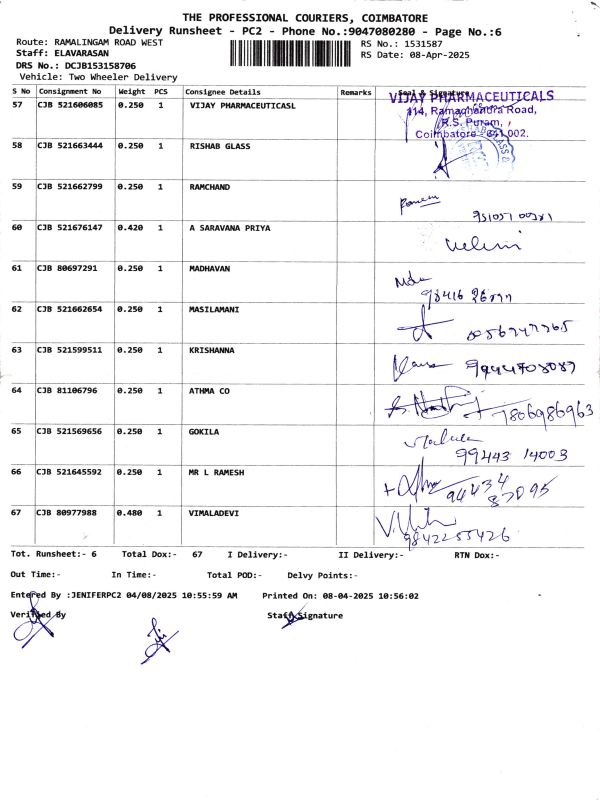 THE PROFESSIONAL COURIERS, COIMBATORE
Delivery Runsheet - PC2 - Phone No.:9047080280 - Page No.:6
Route: RAMALINGAM ROAD WEST
RS No.: 1531587
Staff: ELAVARASAN
RS Date: 08-Apr-2025
DRS No.: DCJB153158706
Vehicle: Two Wheeler Delivery
S No Consignment No Weight PCS Consignee Details Remarks Seal & Signature
57 CJB 521606085 0.250 1 VIJAY PHARMACEUTICASL
VIJAY PHARMACEUTICALS
114, Ramachandra Road,
R.S. Puram,
Coimbatore - 641 002.
58 CJB 521663444 0.250 1 RISHAB GLASS
59 CJB 521662799 0.250 1 RAMCHAND
60 CJB 521676147 0.420 1 A SARAVANA PRIYA
61 CJB 80697291 0.250 1 MADHAVAN
62 CJB 521662654 0.250 1 MASILAMANI
63 CJB 521599511 0.250 1 KRISHANNA
9944708087
64 CJB 81106796 0.250 1 ATHMA CO
7806986963
65 CJB 521569656 0.250 1 GOKILA
99443 14003
66 CJB 521645592 0.250 1 MR L RAMESH
94434
87095
67 CJB 80977988 0.480 1 VIMALADEVI
9842255426
Tot. Runsheet:- 6 Total Dox:- 67 I Delivery:- II Delivery:- RTN Dox:-
Out Time:- In Time:- Total POD:- Delvy Points:-
Entered By :JENIFERPC2 04/08/2025 10:55:59 AM Printed On: 08-04-2025 10:56:02
Verified By Staff Signature